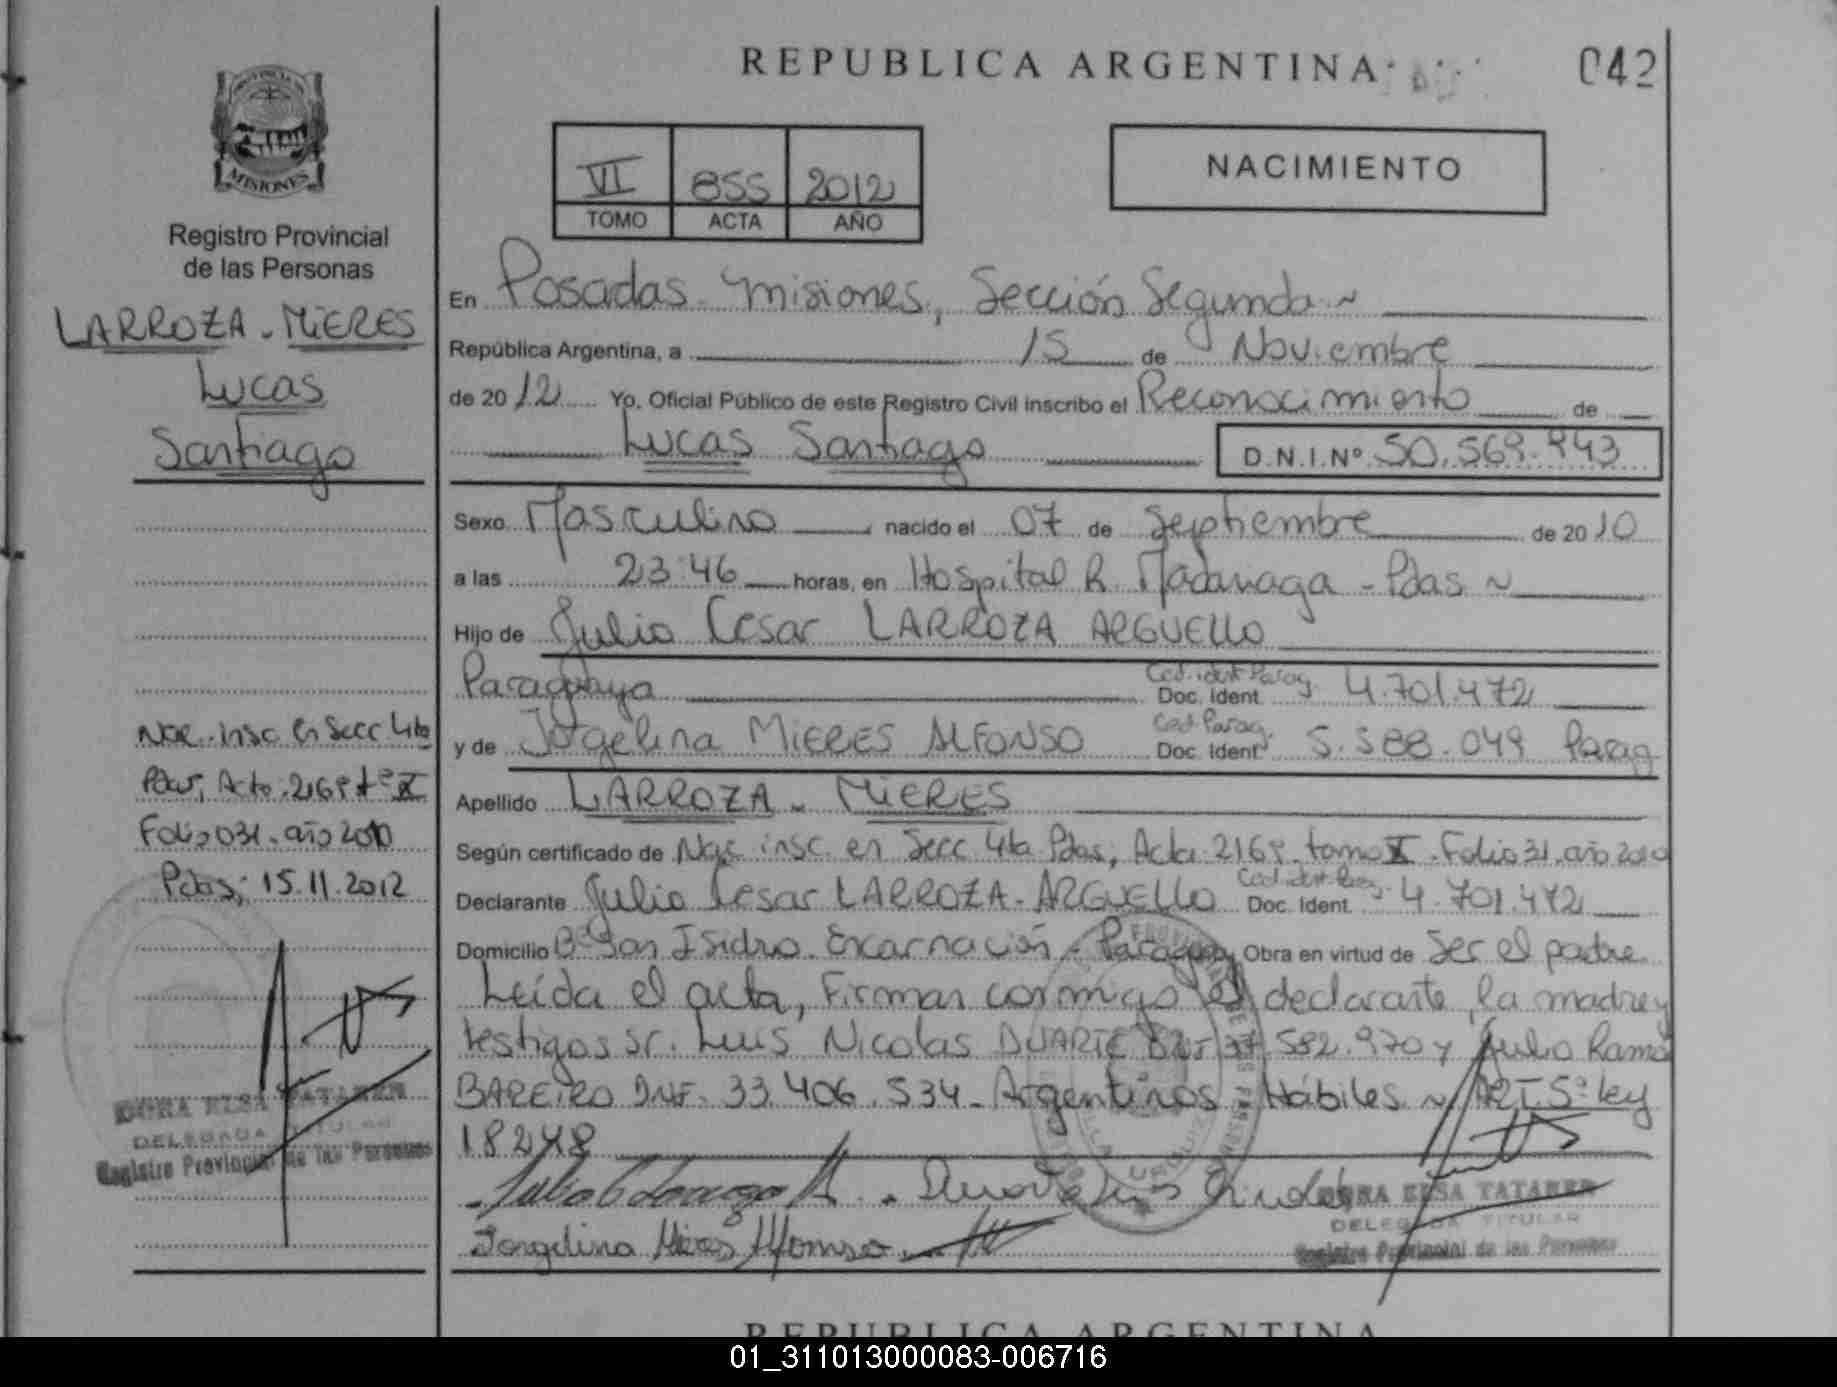 REPUBLICA ARGENTINA
042
PROVINCIA
MISIONES
Registro Provincial
de las Personas
LARROZA - MIERES
Lucas
Santiago
Nac. insc en Secc 4ta
Pdas, Acta 2169 tº X
Folio 031. año 2010
Pdas, 15.11.2012
DORA ELSA TATAREN
DELEGADA TITULAR
Registro Provincial de las Personas
VI 855 2012
TOMO ACTA AÑO
NACIMIENTO
En Posadas - Misiones, Sección Segunda ~
República Argentina, a 15 de Noviembre
de 2012 Yo, Oficial Público de este Registro Civil inscribo el Reconocimiento de
Lucas Santiago D.N.I.Nº 50.569.943
Sexo Masculino, nacido el 07 de Septiembre de 2010
a las 23:46 horas, en Hospital R. Madariaga - Pdas ~
Hijo de Julio Cesar LARROZA ARGUELLO
Paraguaya Ced. ident Parag. Doc. Ident. 4.701.472
y de Jorgelina MIERES ALFONSO Ced. Parag. Doc. Ident. 5.588.049 Parag
Apellido LARROZA - MIERES
Según certificado de Nac. insc. en Secc 4ta Pdas, Acta 2169. tomo X. Folio 31. año 2010
Declarante Julio Cesar LARROZA - ARGUELLO Ced. ident. Parag. Doc. Ident. 4.701.472
Domicilio Bº San Isidro. Encarnación - Paraguay Obra en virtud de Ser el padre
Leída el acta, Firman conmigo el declarante, la madre y
testigos Sr. Luis Nicolas DUARTE DNI 37.582.970 y Julio Ramon
BAREIRO DNI. 33.406.534 - Argentinos Hábiles ~ ART. 5º ley
18248
Jorgelina Mieres Alfonso
DORA ELSA TATAREN
DELEGADA TITULAR
Registro Provincial de las Personas
REPUBLICA ARGENTINA
01_311013000083-006716